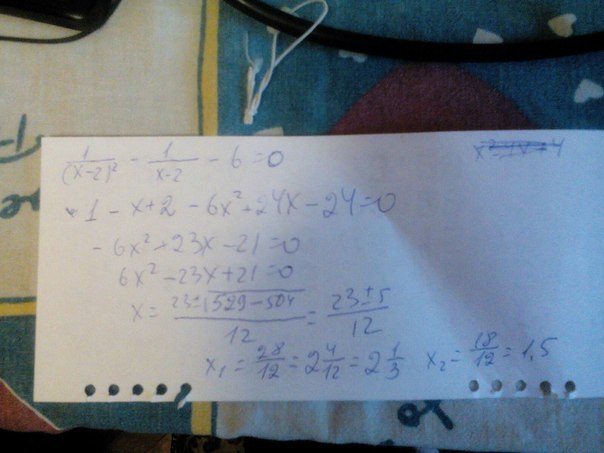 1/(x-2)² - 1/(x-2) - 6 = 0
1 - x + 2 - 6x² + 24x - 24 = 0
- 6x² + 23x - 21 = 0
6x² - 23x + 21 = 0
x = (23 ± √529 - 504)/12 = (23 ± 5)/12
x₁ = 28/12 = 2 4/12 = 2 1/3 x₂ = 18/12 = 1,5